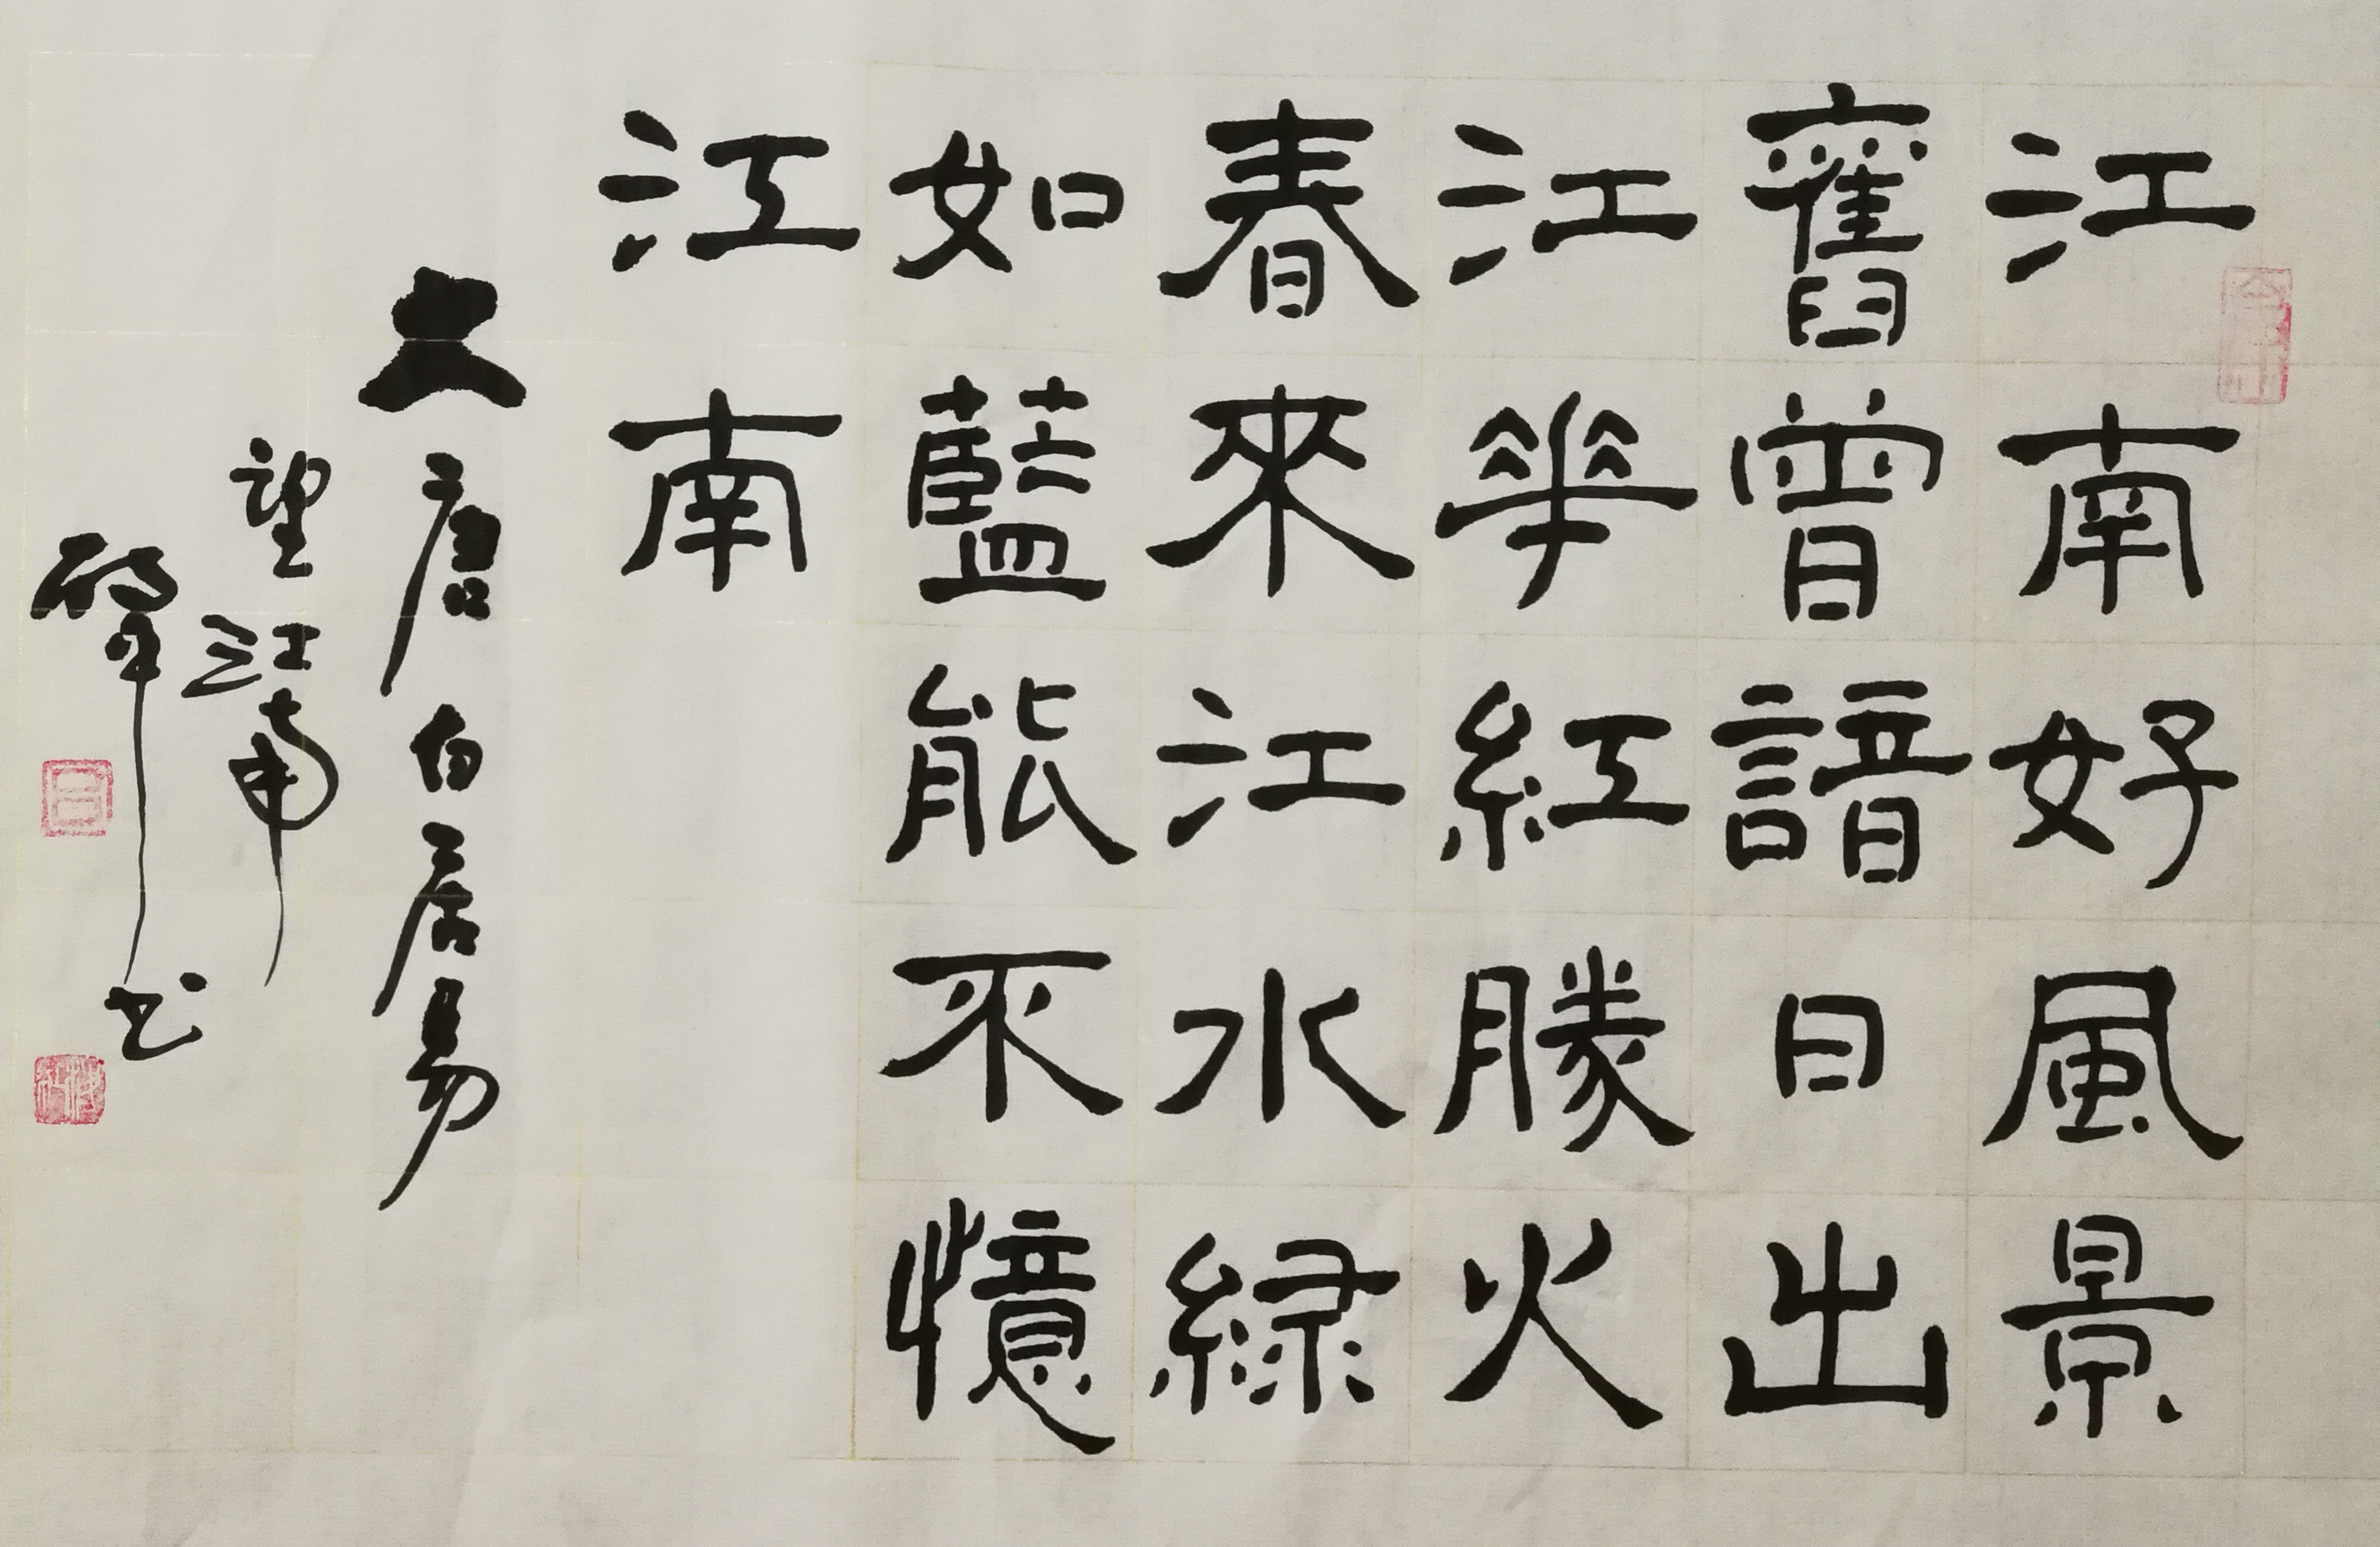 江南好風景
舊曾諳日出
江華紅勝火
春來江水綠
如藍能不憶
江南
大唐白居易
望江南
書